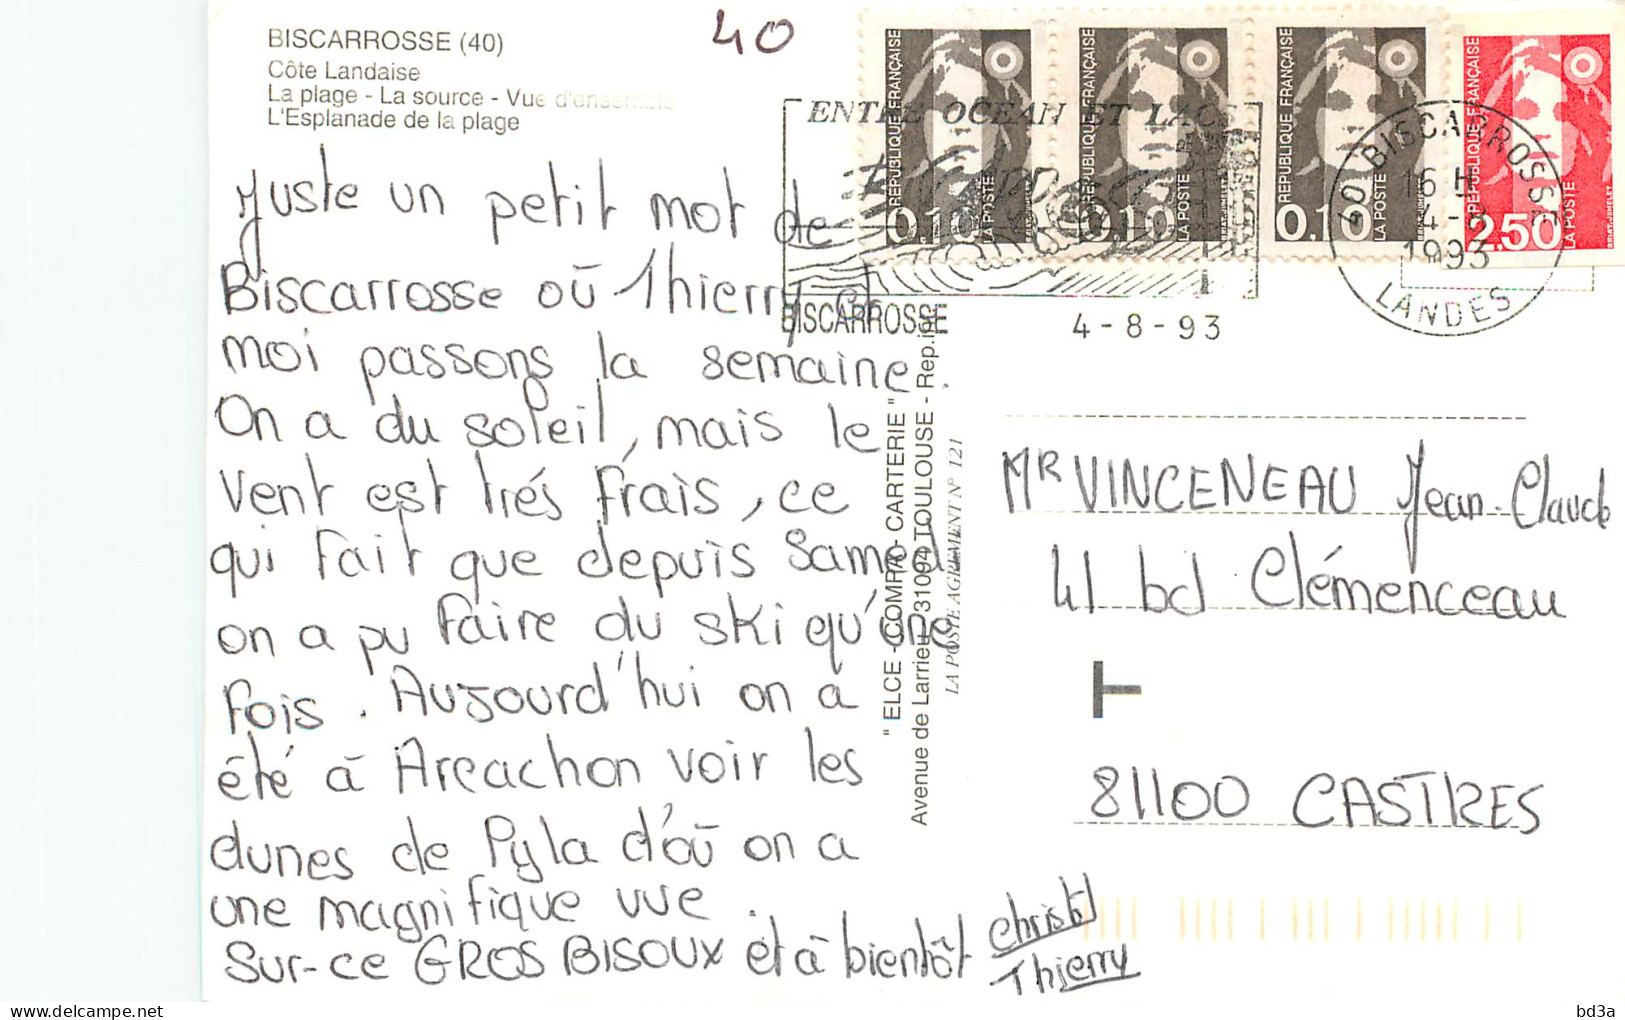 BISCARROSSE (40)
Côte Landaise
La plage - La source - Vue d'ensemble
L'Esplanade de la plage
40
Juste un petit mot de
Biscarrosse où Thierry et
moi passons la semaine.
On a du soleil, mais le
vent est trés frais, ce
qui fait que depuis Samedi
on a pu faire du ski qu'une
fois. Aujourd'hui on a
été à Arcachon voir les
dunes de Pyla d'où on a
une magnifique vue.
Sur-ce GROS BISOUX et à bientôt
Christel
Thierry
"ELCE - COMPA - CARTERIE"
Avenue de Larrieu - 31094 TOULOUSE - Rep.int
LA POSTE AGREMENT N° 121
REPUBLIQUE FRANÇAISE
0.10
LA POSTE
REPUBLIQUE FRANÇAISE
0.10
LA POSTE
REPUBLIQUE FRANÇAISE
0.10
LA POSTE
REPUBLIQUE FRANÇAISE
2.50
LA POSTE
ENTRE OCEAN ET LACS
BISCARROSSE
4-8-93
40 BISCARROSSE
16 H
4-8
1993
LANDES
Mr VINCENEAU Jean-Claude
41 bd Clémenceau
T
81100 CASTRES
bd3a